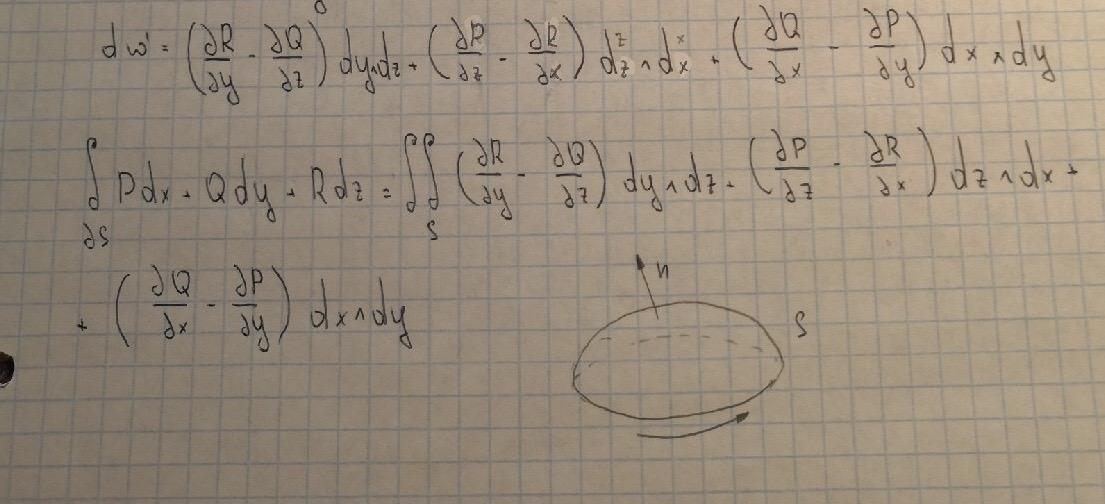 dω' = (∂R/∂y - ∂Q/∂z) dy∧dz + (∂P/∂z - ∂R/∂x) dz∧dx + (∂Q/∂x - ∂P/∂y) dx∧dy
∫_∂S Pdx + Qdy + Rdz = ∬_S (∂R/∂y - ∂Q/∂z) dy∧dz + (∂P/∂z - ∂R/∂x) dz∧dx +
+ (∂Q/∂x - ∂P/∂y) dx∧dy
n
S